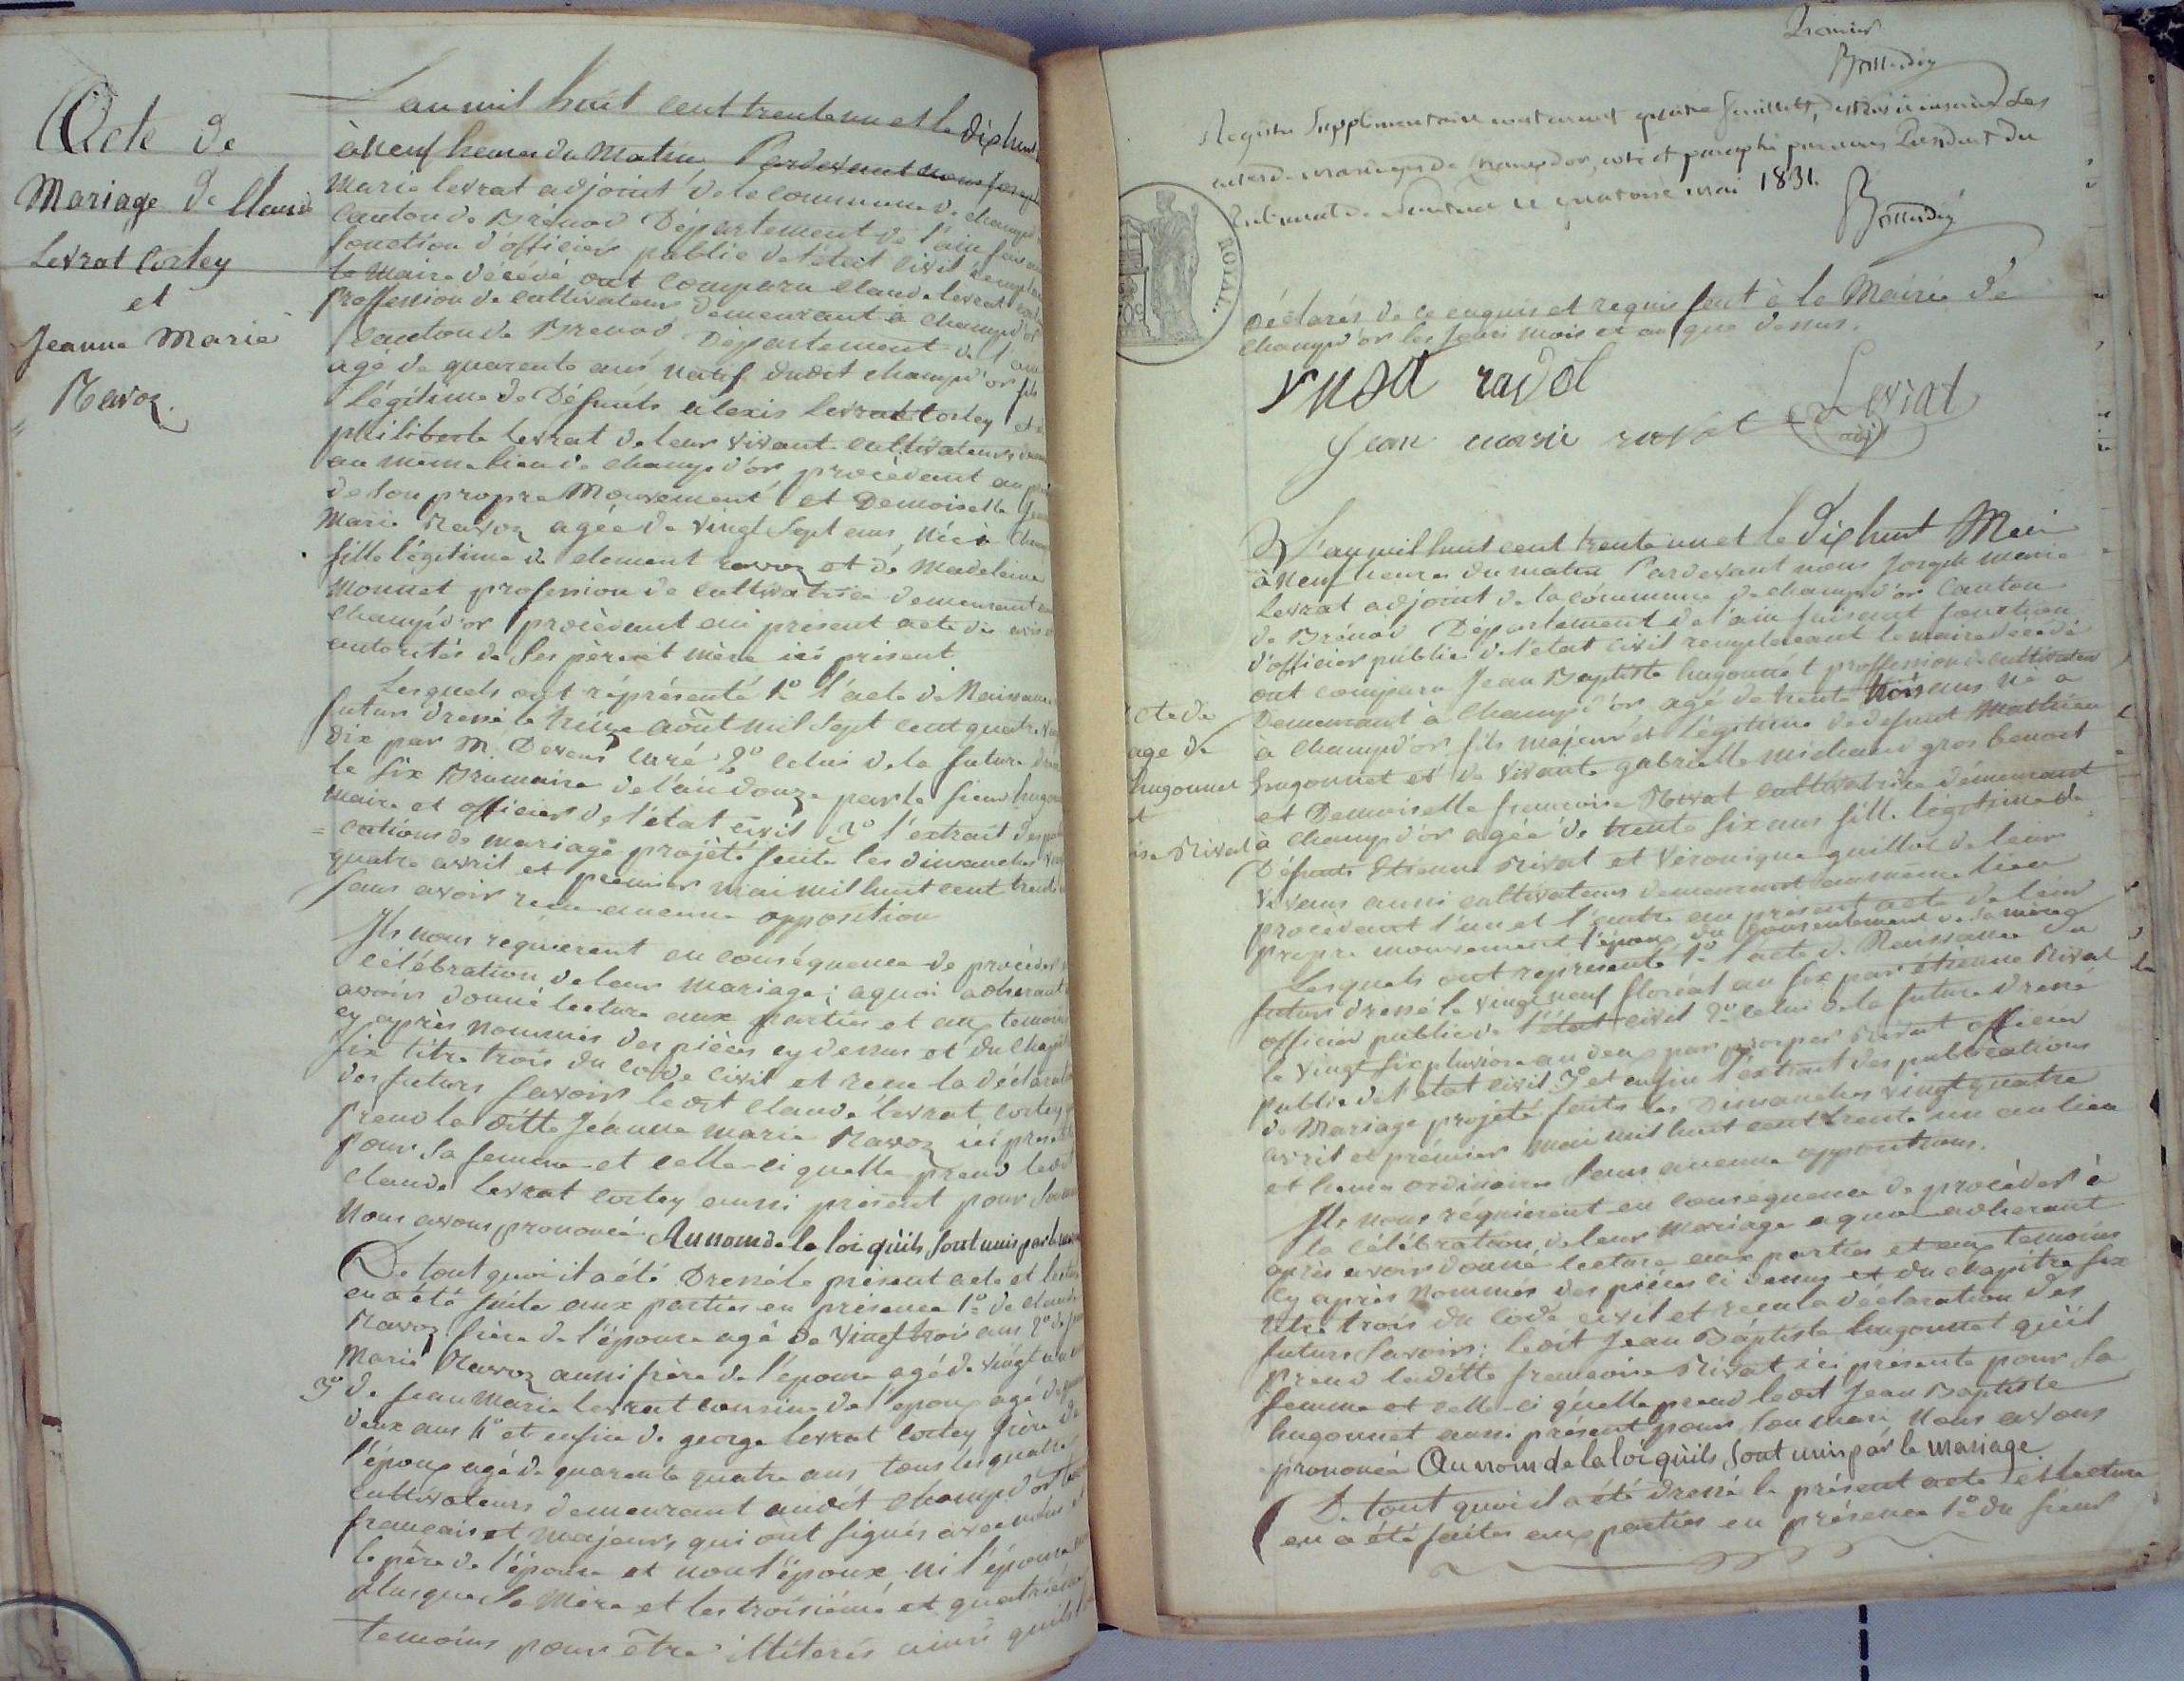 Acte de
Mariage de Claude
Levrat Cortey
et
Jeanne Marie
Ravoz
L'an mil huit cent trente un et le dix huit
à Neuf heures du Matin Pardevant nous
Marie levrat adjoint de la commune de champd'or
Canton de Brénod Département de l'ain
fonction d'officier public de l'état civil
le Maire décédé ont comparu Claude levrat
proffession de cultivateur demeurant à champd'or
Canton de Brenod Département de l'ain
agé de quarente ans natif dudit champd'or fils
légitime de Défunts alexis Levrat Cortey et
philiberte levrat de leur vivant cultivateurs
au même lieu de champd'or procèdant au
de son propre Mouvement et Demoiselle
Marie Ravoz agée de vingt Sept ans, née à
fille légitime de clement ravoz et de Madeleine
Monnet profession de cultivatrice demeurant
champd'or procèdant au présent acte des
autorités de ses père et mère ici présent
Lesquels ont réprésenté 1º l'acte de Naissance
futur dressé le treize août mil sept cent quatre
dix par M. curé 2º celui de la future
le six Brumaire de l'an douze par le sieur
maire et officier de l'état civil 3º l'extrait des
cations de mariage projeté faite les dimanches
quatre avril et premier mai mil huit cent
sans avoir reçu aucune opposition
Ils nous requierent en conséquence de procéder
célébration de leur mariage ; aquoi adherant
avoir donné lecture aux parties et aux temoins
cy après nommés des pièces cy dessus et du
six titre trois du code civil et reçu la déclaration
des futurs Savoir ledit Claude levrat cortey
prend la ditte Jeanne marie Ravoz ici
pour sa femme et celle-ci quelle prend ledit
claude levrat cortey aussi présent pour
nous avons prononcé Au nom de la loi qu'ils sont unis par le
De tout quoi il a été dressé le présent acte et
en a été faite aux parties en présence 1º de claude
Ravoz frère de l'épouse agé de vingt trois ans 2º de
Marie Ravoz aussi frère de l'épouse agé de vingt
3º de Jean Marie levrat cousin de l'époux agé de
deux ans 4º et enfin de george levrat cortey frère de
l'époux agé de quarente quatre ans tous les quatre
cultivateurs demeurant audit champd'or
français et majeurs qui ont signés avec nous
le père de l'épouse et non l'époux ni l'épouse
plus que la Mère et les troisième et quatrième
temoins pour être illiterés ainsi qu'ils
Premier
Registre Supplémentaire contenant quatre feuillets, destiné à inscrire Les
actes de mariages de Champdor, coté et paraphé par nous President du
Tribunal de ce quatorze mai 1831.
ROYAL.
déclarés de ce enquis et requis fait à la Mairie de
champd'or les jour mois et an que dessus.
Levrat
Jean marie
adj
L'an mil huit cent trente un et le dix huit Mai
à Neuf heures du matin Pardevant nous Joseph marie
Levrat adjoint de la commune de champd'or Canton
de Brénod Département de l'ain faisant fonction
d'officier public de l'état civil remplacant le maire décédé
ont comparu Jean Baptiste hugonnet proffession de cultivateur
demeurant à champd'or agé de trente trois ans né a
à champd'or fils majeur et légitime de defunt Mathieu
hugonnet et de vivante gabrielle michaud gros benoit
et Demoiselle francoise Rivat cultivatrice démeurant
à champd'or agée de trente six ans fille légitime de
Défunts Etienne Rivat et Véronique guillot de leur
vivans aussi cultivateurs demeurant au même lieu
procèdant l'un et l'autre au présent acte de leur
propre mouvement l'époux du consentement de sa mère
Lesquels ont représenté 1º l'acte de Naissance du
futur dressé le vingt neuf floréal an six par étienne Rivat
officier public de l'état civil 2º celui de la future dressé
le vingt six pluviose an deux par prosper Rivat officier
public de l'état civil 3º et enfin l'extrait des publications
de Mariage projeté faits les Dimanches vingt quatre
avril et prémier mai mil huit cent trente un au lieu
et heures ordinaires sans aucune oppositions.
Ils nous réquierent en conséquence de procéder à
la célébration de leur mariage aquoi adherant
après avoir donné lecture aux parties et aux temoins
cy après nommés des pièces ci dessus et du chapitre six
titre trois du code civil et reçu la déclaration des
futurs Savoir: ledit Jean Baptiste hugonnet qu'il
prend laditte francoise Rivat ici présente pour sa
femme et celle-ci qu'elle prend ledit Jean Baptiste
hugonnet aussi présent pour son mari, nous avons
prononcé Au nom de la loi qu'ils sont unis par le mariage
De tout quoi il a été dressé le présent acte et lecture
en a été faites aux parties en présence 1º du sieur
cte de
age de
hugonnet
et
ise Rivat